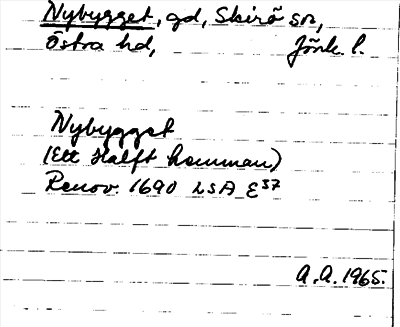 Nybygget, gd, Skirö sn,
Östra hd, Jönk. l.
Nybygget
(Ett Halft hemman)
Renov. 1690 LSA E37
A.A. 1965.